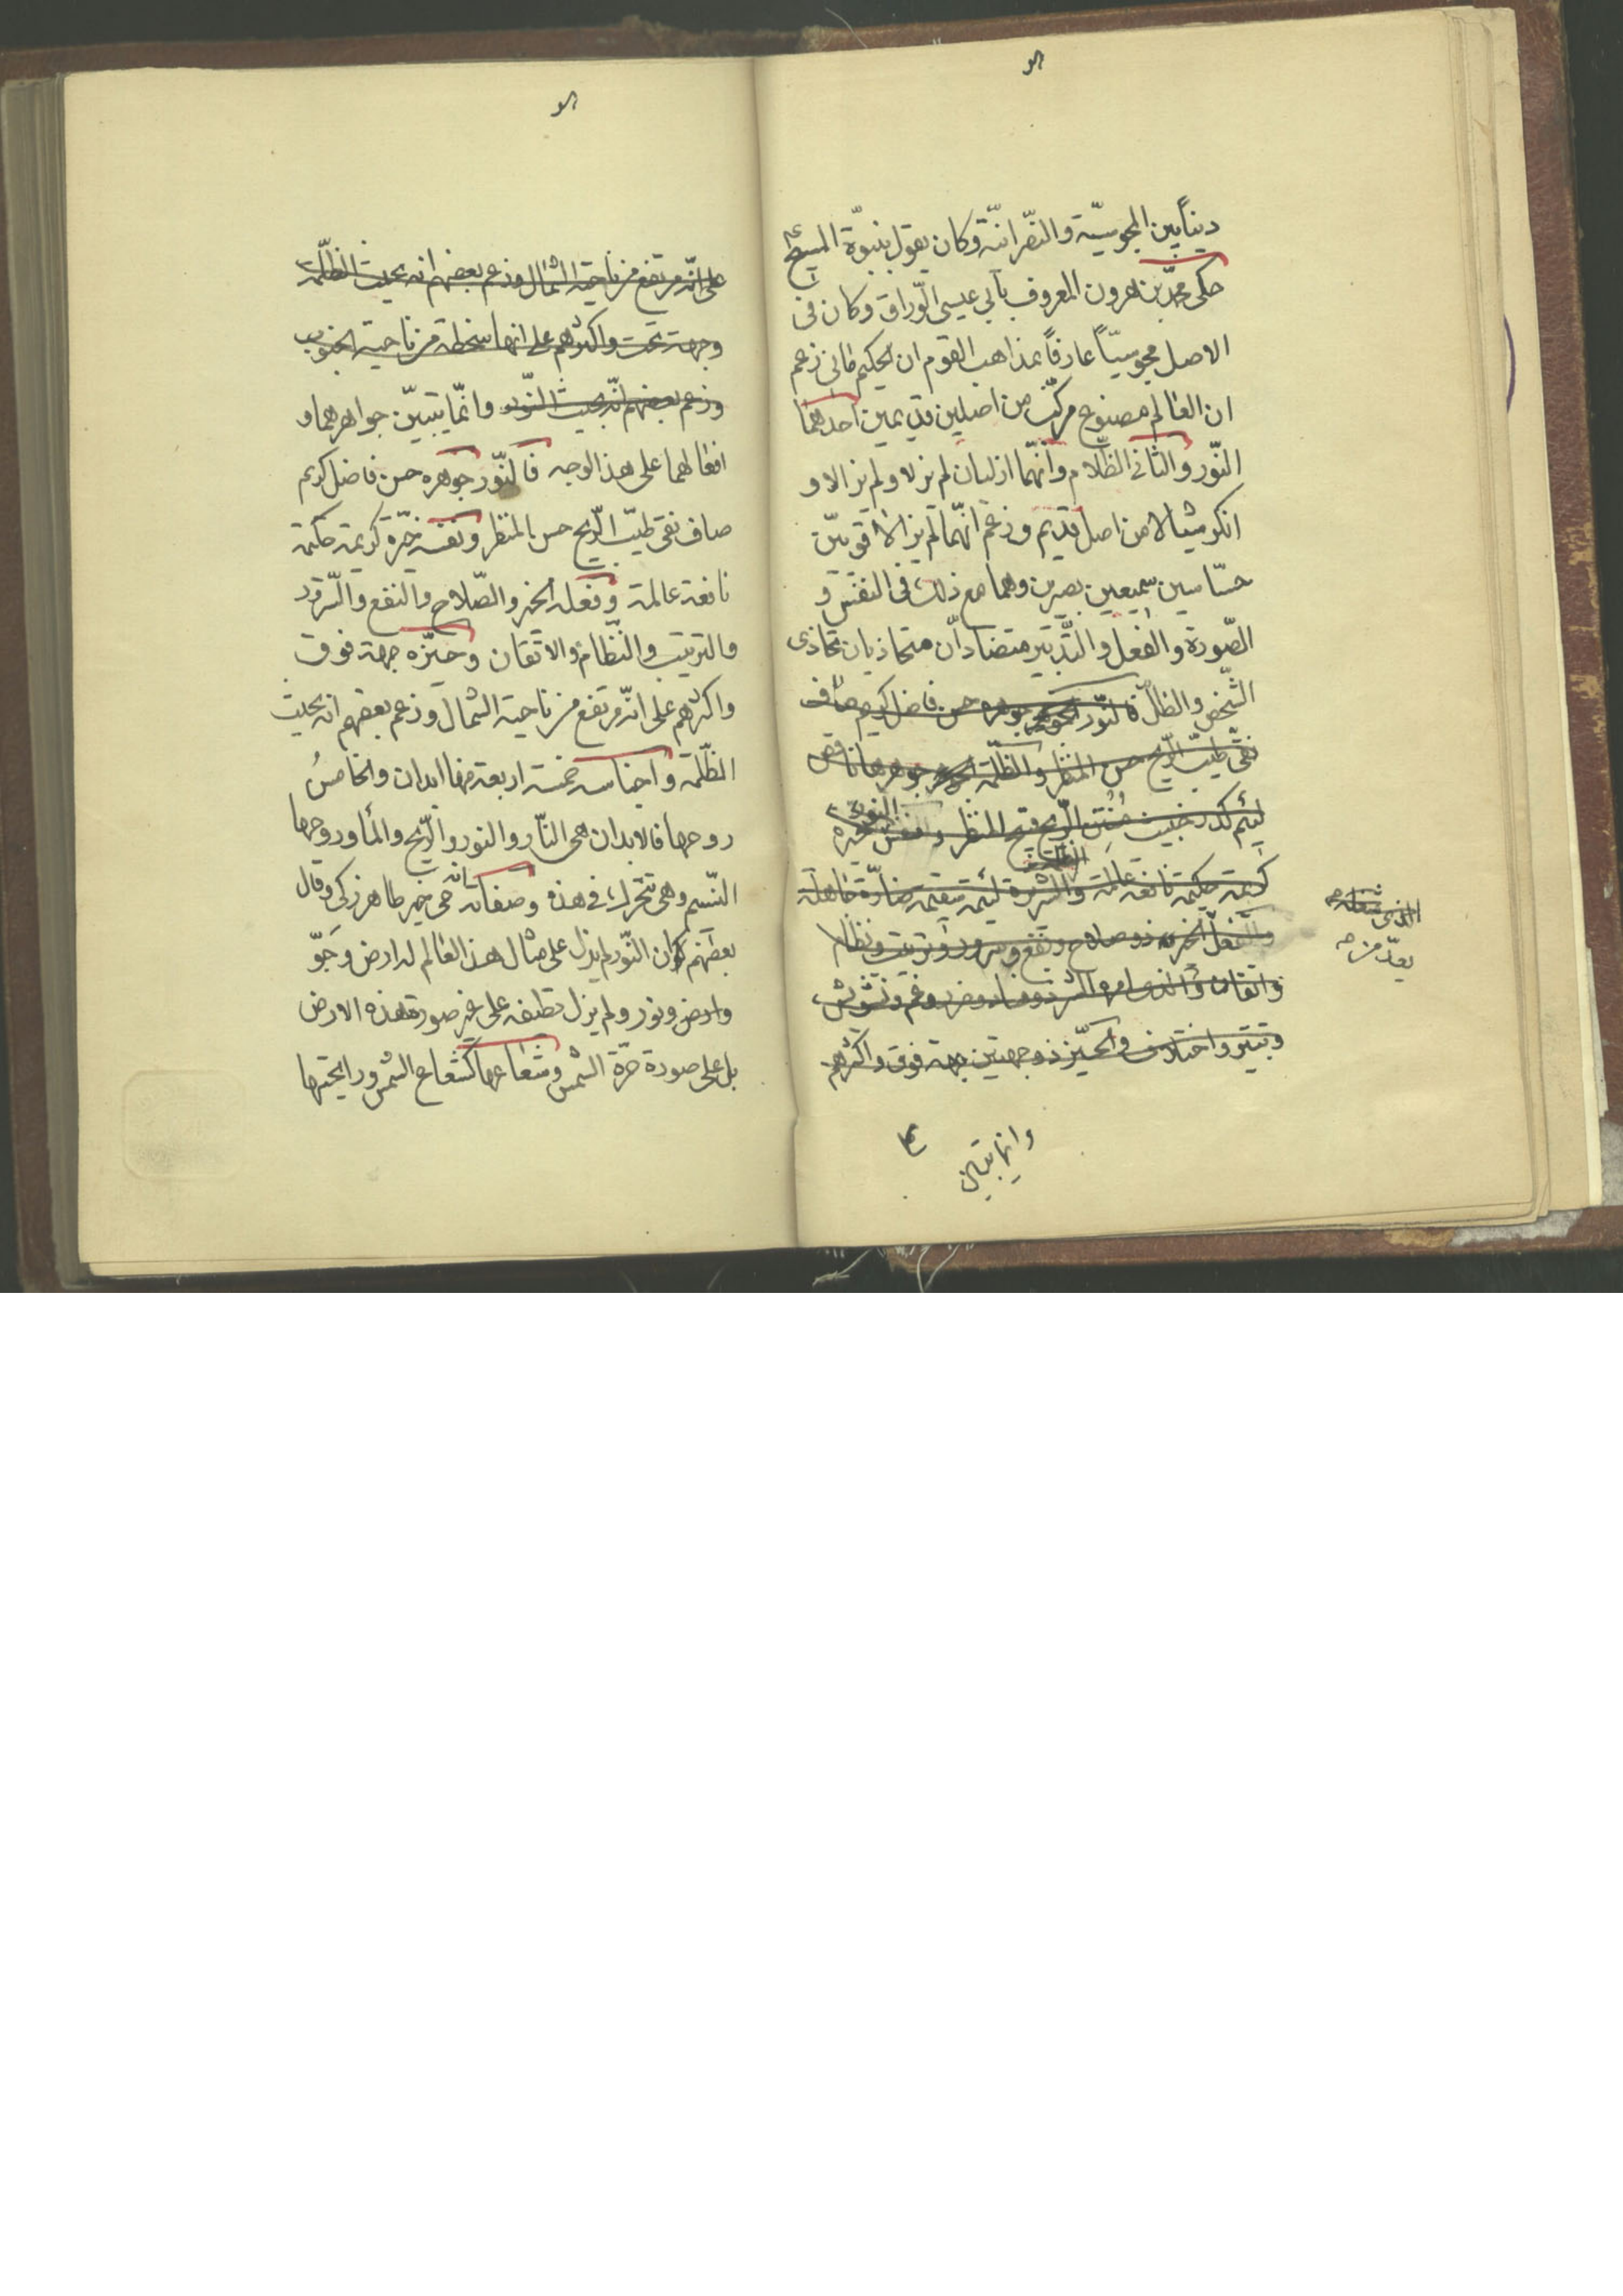 ديناً بين المجوسيّة والنصّرانيّة وكان يقول بنبوّة المسيح ع
حكى محمّد بن هرون المعروف بأبي عيسى الورّاق وكان في
الاصل مجوسيّاً عارفاً بمذاهب القوم ان الحكيم مانى زعم
ان العالم مصنوع مركّب من اصلين قديمين احدهما
النّور والثانى الظّلام وانّهما ازليان لم يزلا ولم يزالا و
انكر شيئا لا من اصل قديم وزعم انّهما لم يزالا قويّين
حسّاسين سميعين بصيرين وهما مع ذلك فى النفس و
الصّورة والفعل والتّدبير متضادّان متحاذيان تحاذى
الشّخص والظلّ فالنّور جوهره حسن فاضل كريم صاف
نقىّ طيّب الرّيح حسن المنظر والظّلمة جوهرها ناقص
لئيم كدر خبيث مُنْتِن الرّيح قبيح المنظر ونفس النور خيّرة
كريمة حكيمة نافعة عالمة والشريرة لئيمة سفيهة ضارّة جاهلة
والفعل الخير ذو صلاح ونفع وسرور وترتيب ونظام
واتقان والذى امره الشر ذو فساد وضر وغم وتشويش
وتبتير واختلاف والحيّز ذو جهتين جهة فوق واكثرهم
وانما يتبين
على انّه مرتفع من ناحية الشمال وزعم بعضهم انه بحيث الظّلمة
وجهة تحت واكثرهم على انها منحطة من ناحية الجنوب
وزعم بعضهم انّه بحيث النّور وانّما يتبيّن جواهرهما و
افعالهما على هذا الوجه فالنّور جوهره حسن فاضل كريم
صاف نقى طيّب الرّيح حسن المنظر ونفسه خيّرة كريمة حكيمة
نافعة عالمة وفعله الخير والصّلاح والنفع والسّرور
والترتيب والنّظام والاتّقان وحيّزه جهة فوق
واكثرهم على انّه مرتفع من ناحية الشمال وزعم بعضهم انه بحيث
الظّلمة واجناسه خمسة اربعة منها ابدان والخامسُ
روحها فالابدان هى النّار والنور والرّيح والمأ وروحها
النّسيم وهى تتحرك فى هذه وصفاته حى خير طاهر زكى وقال
بعضهم كان النّور لم يزل على مثال هذا العالم له ارض وجَوّ
وارض ونور ولم يزل لطيفه على غير صورة هذه الارض
بل على صورة جرة الشمس وشعاعها كشعاع الشمس ورائحتها